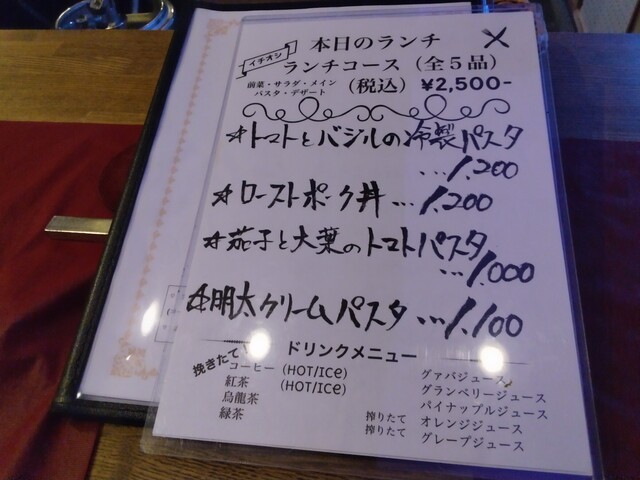 本日のランチ
イチオシ
ランチコース（全５品）
前菜・サラダ・メイン
パスタ・デザート
（税込） ¥2,500-
☆トマトとバジルの冷製パスタ
…1,200
☆ローストポーク丼…1,200
☆茄子と大葉のトマトパスタ
…1,000
☆明太クリームパスタ…1,100
ドリンクメニュー
挽きたて！
コーヒー（HOT/ICe）
紅茶 （HOT/ICe）
烏龍茶
緑茶
グァバジュース
グランベリージュース
パイナップルジュース
搾りたて オレンジジュース
搾りたて グレープジュース